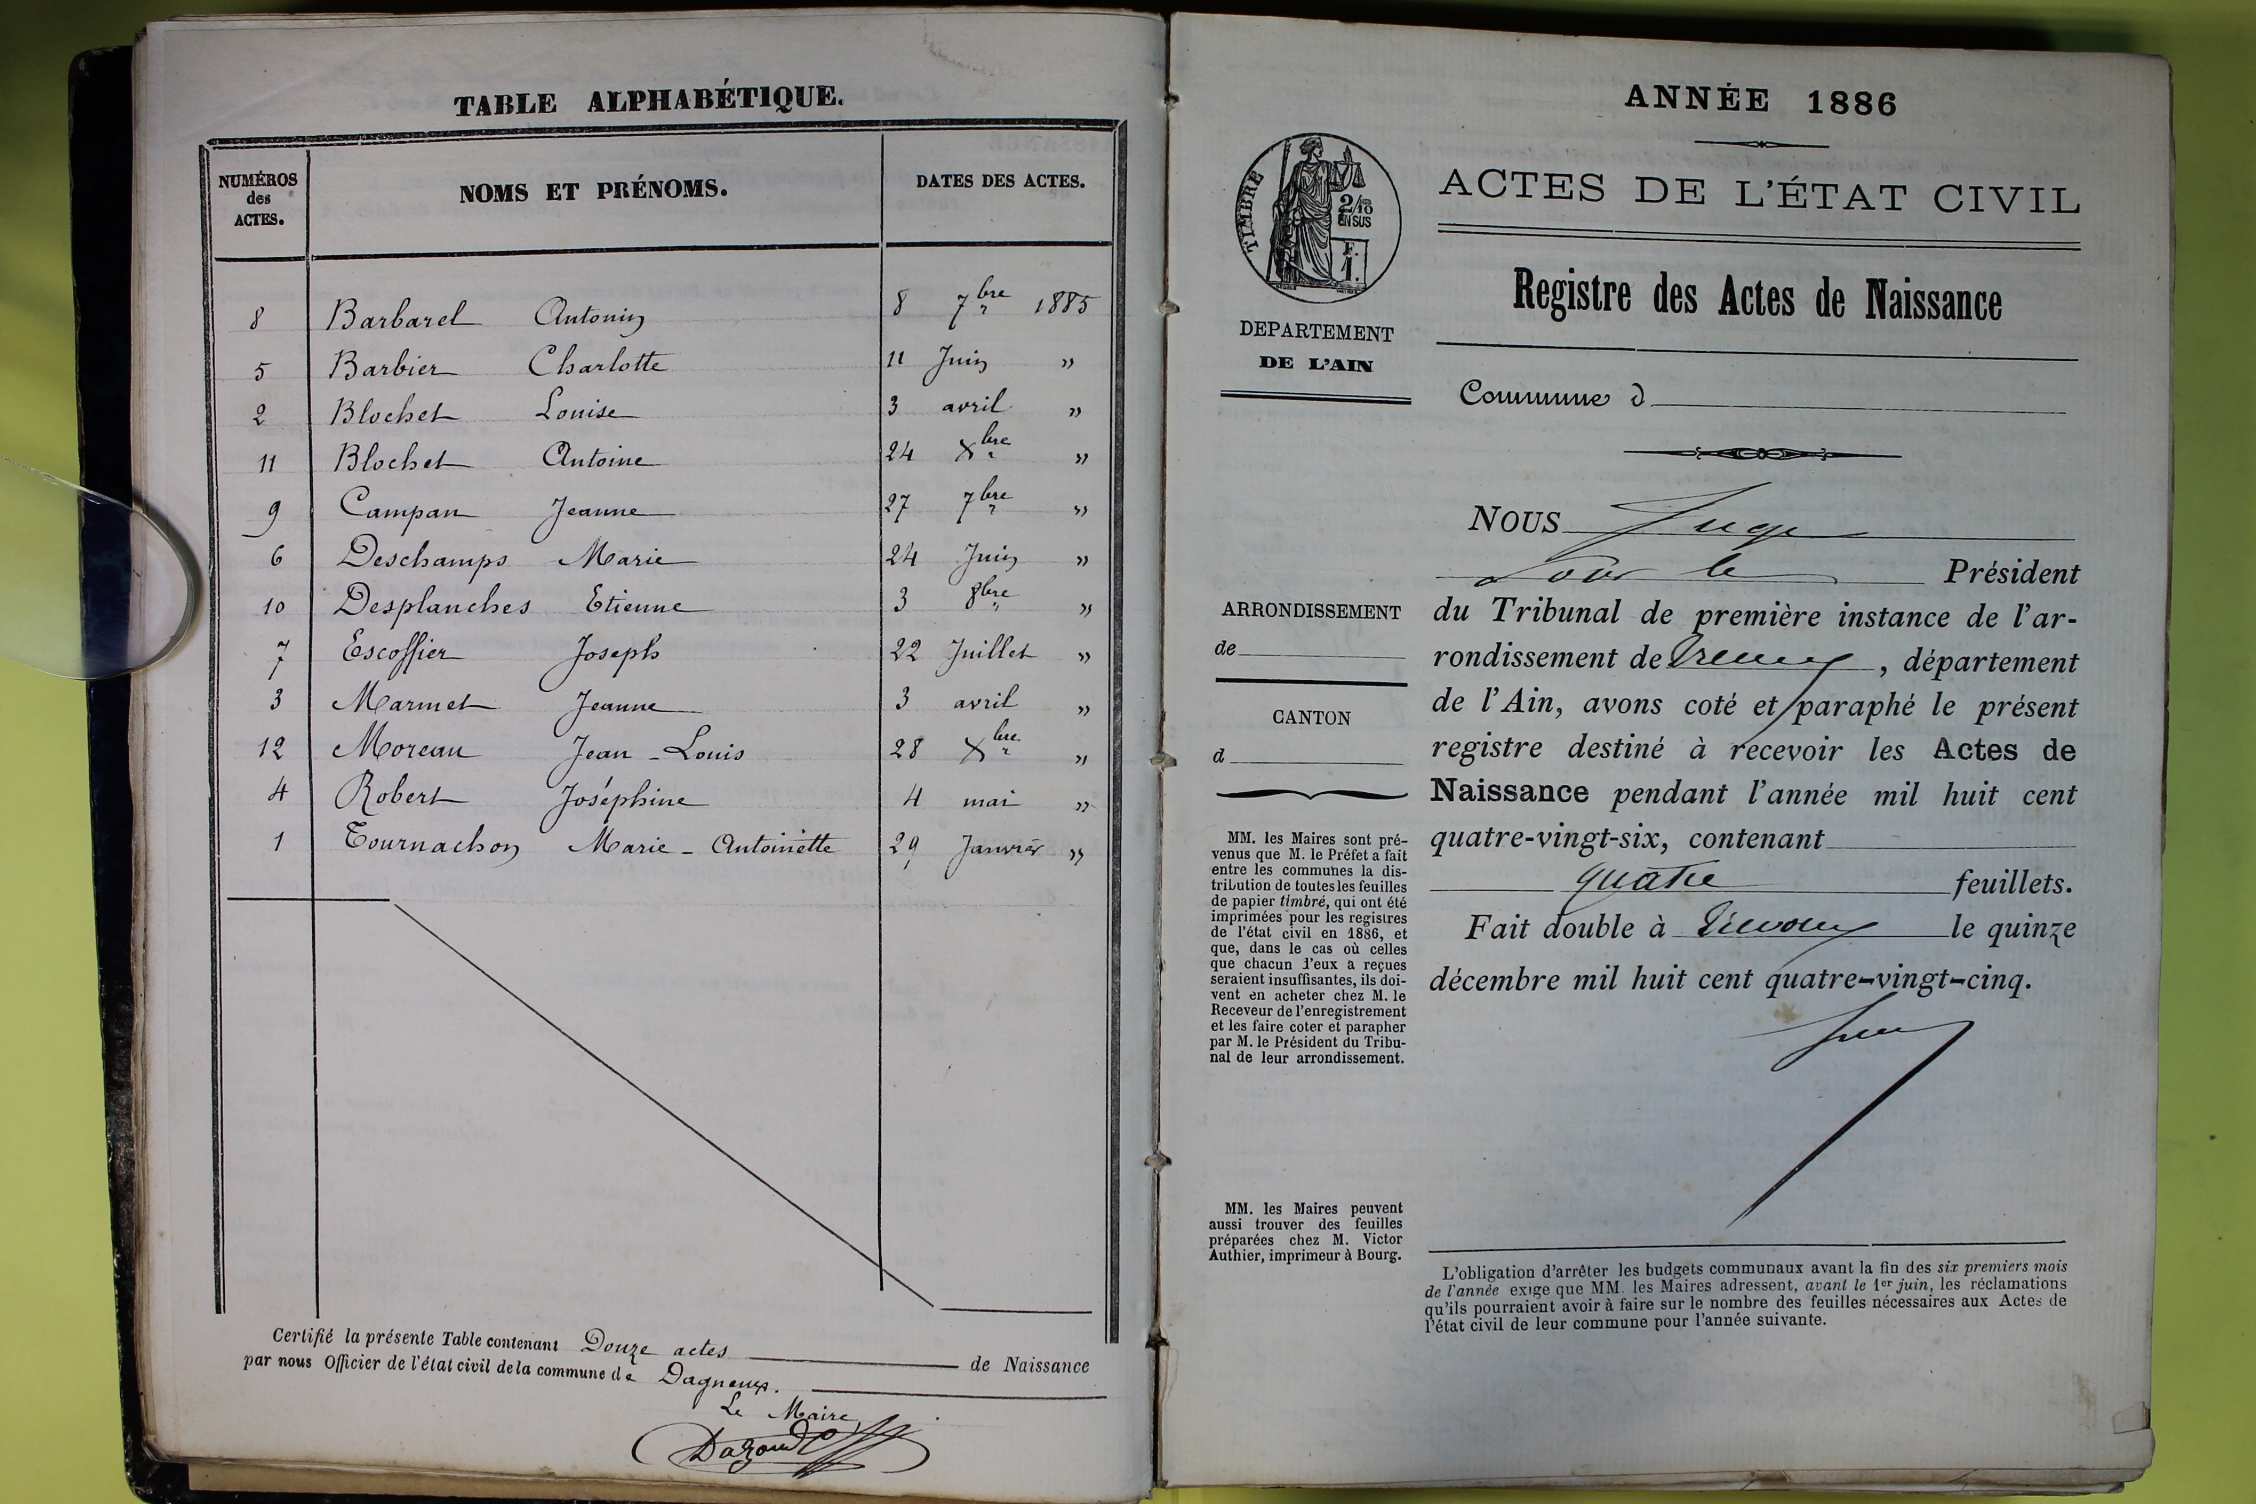 TABLE ALPHABÉTIQUE.
NUMÉROS des ACTES.
NOMS ET PRÉNOMS.
DATES DES ACTES.
8 Barbarel Antonin 8 7bre 1885
5 Barbier Charlotte 11 Juin "
2 Blochet Louise 3 avril "
11 Blochet Antoine 24 Xbre "
9 Campan Jeanne 27 7bre "
6 Deschamps Marie 24 Juin "
10 Desplanches Etienne 3 8bre "
7 Escoffier Joseph 22 Juillet "
3 Marmet Jeanne 3 avril "
12 Moreau Jean-Louis 28 Xbre "
4 Robert Joséphine 4 mai "
1 Tournachon Marie-Antoinette 29 Janvier "
Certifié la présente Table contenant Douze actes de Naissance
par nous Officier de l'état civil de la commune de Dagneux.
Le Maire,
ANNÉE 1886
TIMBRE
2/10
EN SUS
F.
1.
ACTES DE L'ÉTAT CIVIL
Registre des Actes de Naissance
DEPARTEMENT
DE L'AIN
Commune d
NOUS Juge
Pour le Président
ARRONDISSEMENT
de
CANTON
d
du Tribunal de première instance de l'ar-
rondissement de Trévoux, département
de l'Ain, avons coté et paraphé le présent
registre destiné à recevoir les Actes de
Naissance pendant l'année mil huit cent
quatre-vingt-six, contenant
quatre feuillets.
Fait double à Trévoux le quinze
décembre mil huit cent quatre-vingt-cinq.
MM. les Maires sont pré-
venus que M. le Préfet a fait
entre les communes la dis-
tribution de toutes les feuilles
de papier timbré, qui ont été
imprimées pour les registres
de l'état civil en 1886, et
que, dans le cas où celles
que chacun d'eux a reçues
seraient insuffisantes, ils doi-
vent en acheter chez M. le
Receveur de l'enregistrement
et les faire coter et parapher
par M. le Président du Tribu-
nal de leur arrondissement.
MM. les Maires peuvent
aussi trouver des feuilles
préparées chez M. Victor
Authier, imprimeur à Bourg.
L'obligation d'arrêter les budgets communaux avant la fin des six premiers mois
de l'année exige que MM. les Maires adressent, avant le 1er juin, les réclamations
qu'ils pourraient avoir à faire sur le nombre des feuilles nécessaires aux Actes de
l'état civil de leur commune pour l'année suivante.